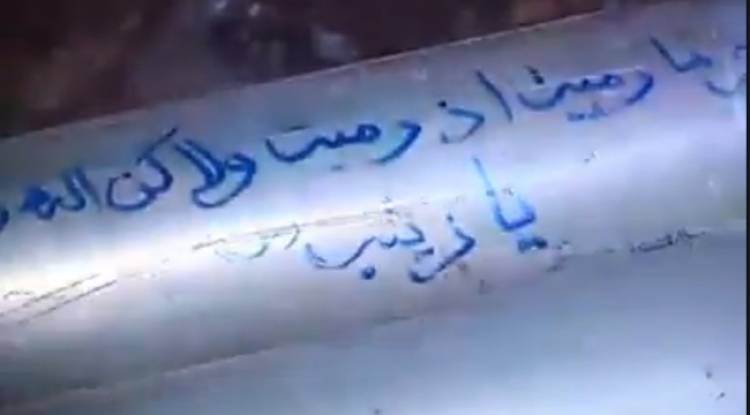 ما رميت اذ رميت ولاكن الله
يا زينب